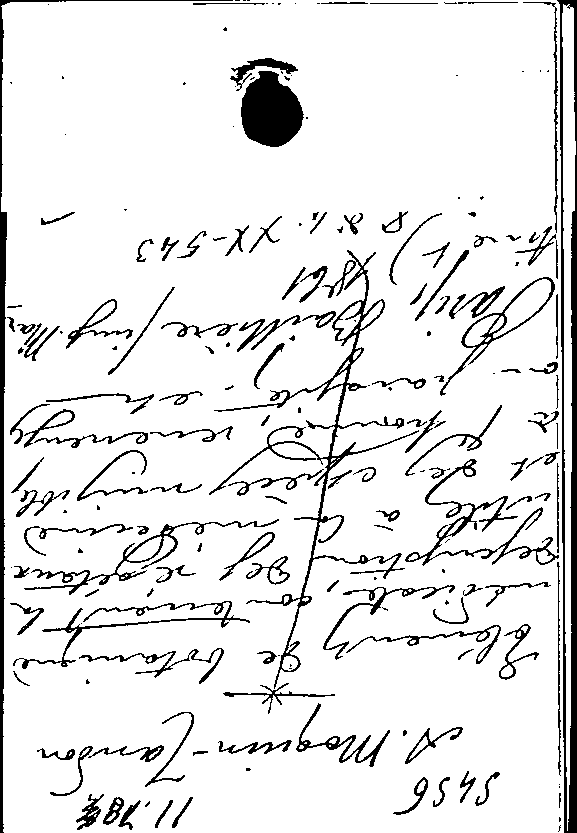 5456
A. Moquin-Tandon
Éléments de botanique
médicale, contenant la
description des végétaux
utiles à la médecine
et des espèces nuisibles
à l'homme, vénéneuses
ou parasites, etc
Paris, Baillière /imp. Mar-
tinet) 1861
8° h. XX-543